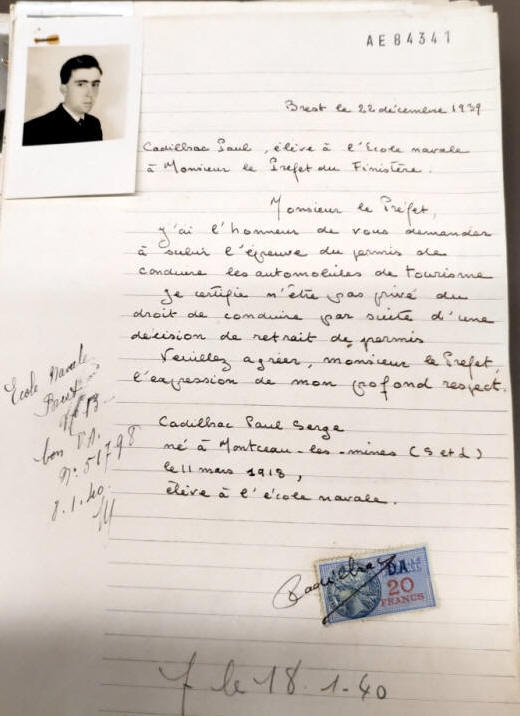 AE84341
Brest le 22 décembre 1939
Cadilhac Paul, élève à l'Ecole navale
à Monsieur le Préfet du Finistère.
Monsieur le Préfet,
J'ai l'honneur de vous demander
à subir l'épreuve du permis de
conduire les automobiles de tourisme
Je certifie n'être pas privé du
droit de conduire par suite d'une
décision de retrait de permis
Veuillez agréer, monsieur le Préfet,
l'expression de mon profond respect.
Cadilhac Paul Serge
né à Montceau-les-mines (S et L)
le 11 mars 1918,
élève à l'école navale.
Ecole Navale
Brest
bon D.A.
N° 51798
8.1.40.
Cadilhac
D.A.
20
FRANCS
le 18.1-40